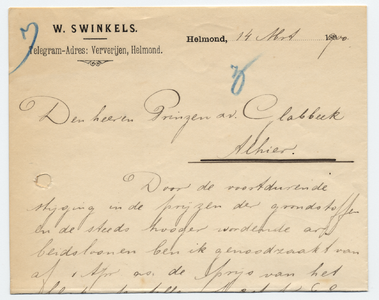 W. SWINKELS.
Telegram-Adres: Ververijen, Helmond.
Helmond, 14 Mrt 1900
Den heeren Prinzen & v. Glabbeek
Alhier.
Door de voortdurende
stijging in de prijzen der grondstoffen
en de steeds hooger wordende ar-
beidsloonen ben ik genoodzaakt van
af 1 Apr. as. de prijs van het